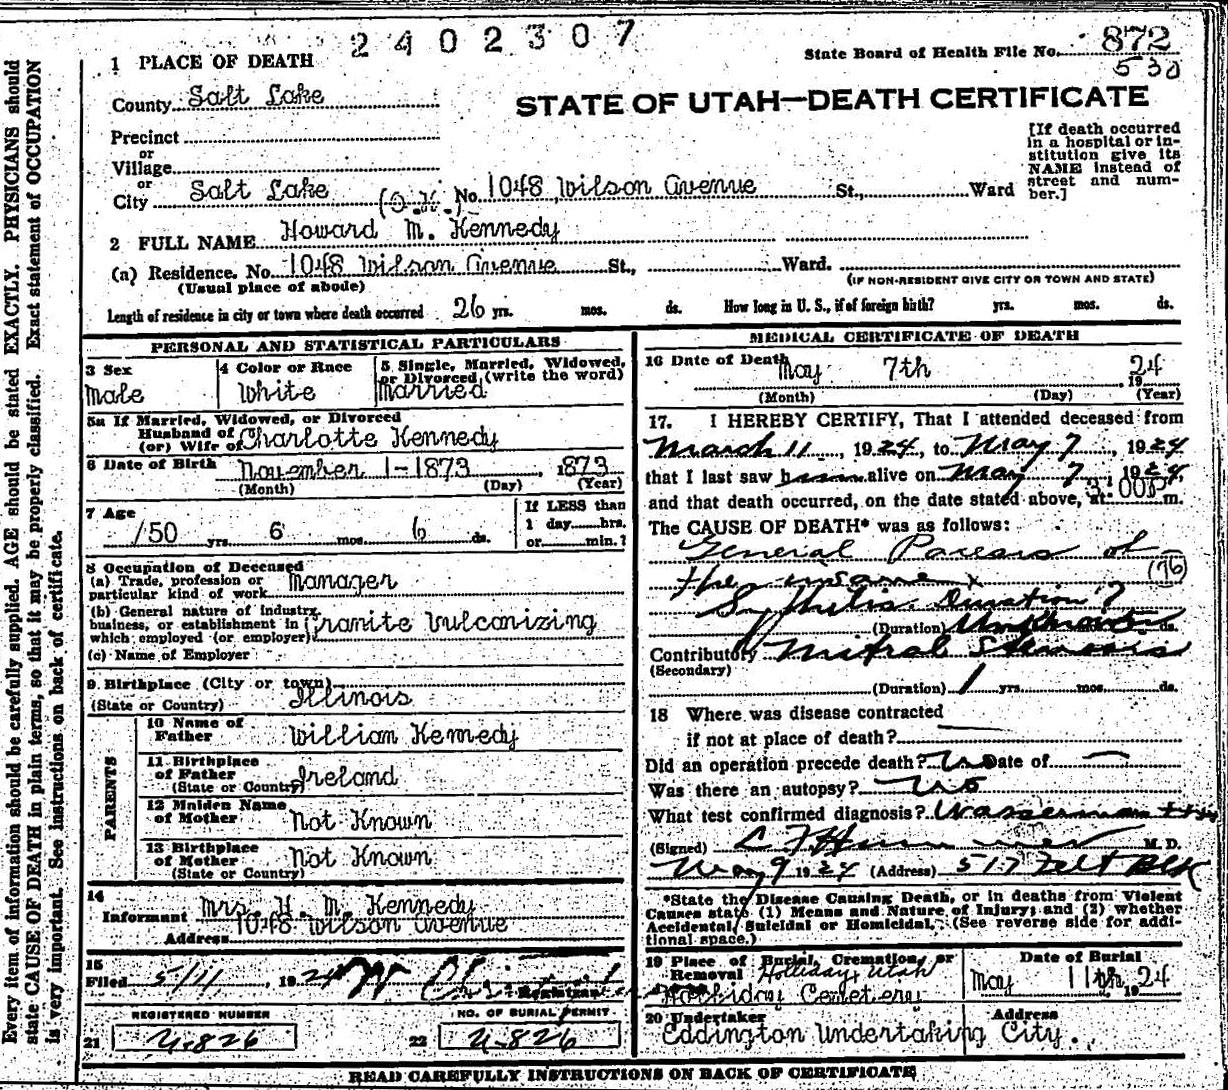 2402307
State Board of Health File No. 872
530
1 PLACE OF DEATH
County Salt Lake
STATE OF UTAH—DEATH CERTIFICATE
Precinct
or
Village
or
City Salt Lake (O.K.) No. 1048 Wilson Avenue St., Ward
[If death occurred
in a hospital or in-
stitution give its
NAME instead of
street and num-
ber.]
2 FULL NAME Howard M. Kennedy
(a) Residence. No. 1048 Wilson Avenue St., Ward.
(Usual place of abode)
(IF NON-RESIDENT GIVE CITY OR TOWN AND STATE)
Length of residence in city or town where death occurred 26 yrs. mos. ds. How long in U. S., if of foreign birth? yrs. mos. ds.
PERSONAL AND STATISTICAL PARTICULARS
3 Sex
Male
4 Color or Race
White
5 Single, Married, Widowed,
or Divorced (write the word)
Married
5a If Married, Widowed, or Divorced
Husband of
(or) Wife of Charlotte Kennedy
6 Date of Birth November 1-1873, 1873
(Month) (Day) (Year)
7 Age
50 yrs. 6 mos. 6 ds.
If LESS than
1 day hrs.
or min.?
8 Occupation of Deceased
(a) Trade, profession or
particular kind of work Manager
(b) General nature of industry,
business, or establishment in
which employed (or employer) Granite Vulcanizing
(c) Name of Employer
9 Birthplace (City or town)
(State or Country) Illinois
PARENTS
10 Name of
Father Willian Kemedy
11 Birthplace
of Father
(State or Country) Ireland
12 Maiden Name
of Mother Not Known
13 Birthplace
of Mother
(State or Country) Not Known
14
Informant Mrs. H. M. Kennedy
Address 1048 Wilson Avenue
15
Filed 5/11, 1924
Registrar
REGISTERED NUMBER
21 U-826
NO. OF BURIAL PERMIT
22 U-826
MEDICAL CERTIFICATE OF DEATH
16 Date of Death May 7th 1924
(Month) (Day) (Year)
17. I HEREBY CERTIFY, That I attended deceased from
March 11, 1924, to May 7, 1924
that I last saw him alive on May 7 1924,
and that death occurred, on the date stated above, at 3:00P m.
The CAUSE OF DEATH* was as follows:
General Paresis of
the insane
(76)
Syphilis. Duration?
(Duration) Unknown ds.
Contributory Mitral Stenosis
(Secondary)
(Duration) 1 yrs. mos. ds.
18 Where was disease contracted
if not at place of death?
Did an operation precede death? No Date of —
Was there an autopsy? No
What test confirmed diagnosis? Wasserman
(Signed) M. D.
May 9 1924 (Address) 517 Felt Blk
*State the Disease Causing Death, or in deaths from Violent
Causes state (1) Means and Nature of Injury; and (2) whether
Accidental, Suicidal or Homicidal. (See reverse side for addi-
tional space.)
19 Place of Burial, Cremation, or
Removal Holliday, Utah
Holliday Cemetery
Date of Burial
May 11 1924
20 Undertaker
Eddington Undertaking
Address
City.
READ CAREFULLY INSTRUCTIONS ON BACK OF CERTIFICATE
Every item of information should be carefully supplied. AGE should be stated EXACTLY. PHYSICIANS should
state CAUSE OF DEATH in plain terms, so that it may be properly classified. Exact statement of OCCUPATION
is very important. See instructions on back of certificate.